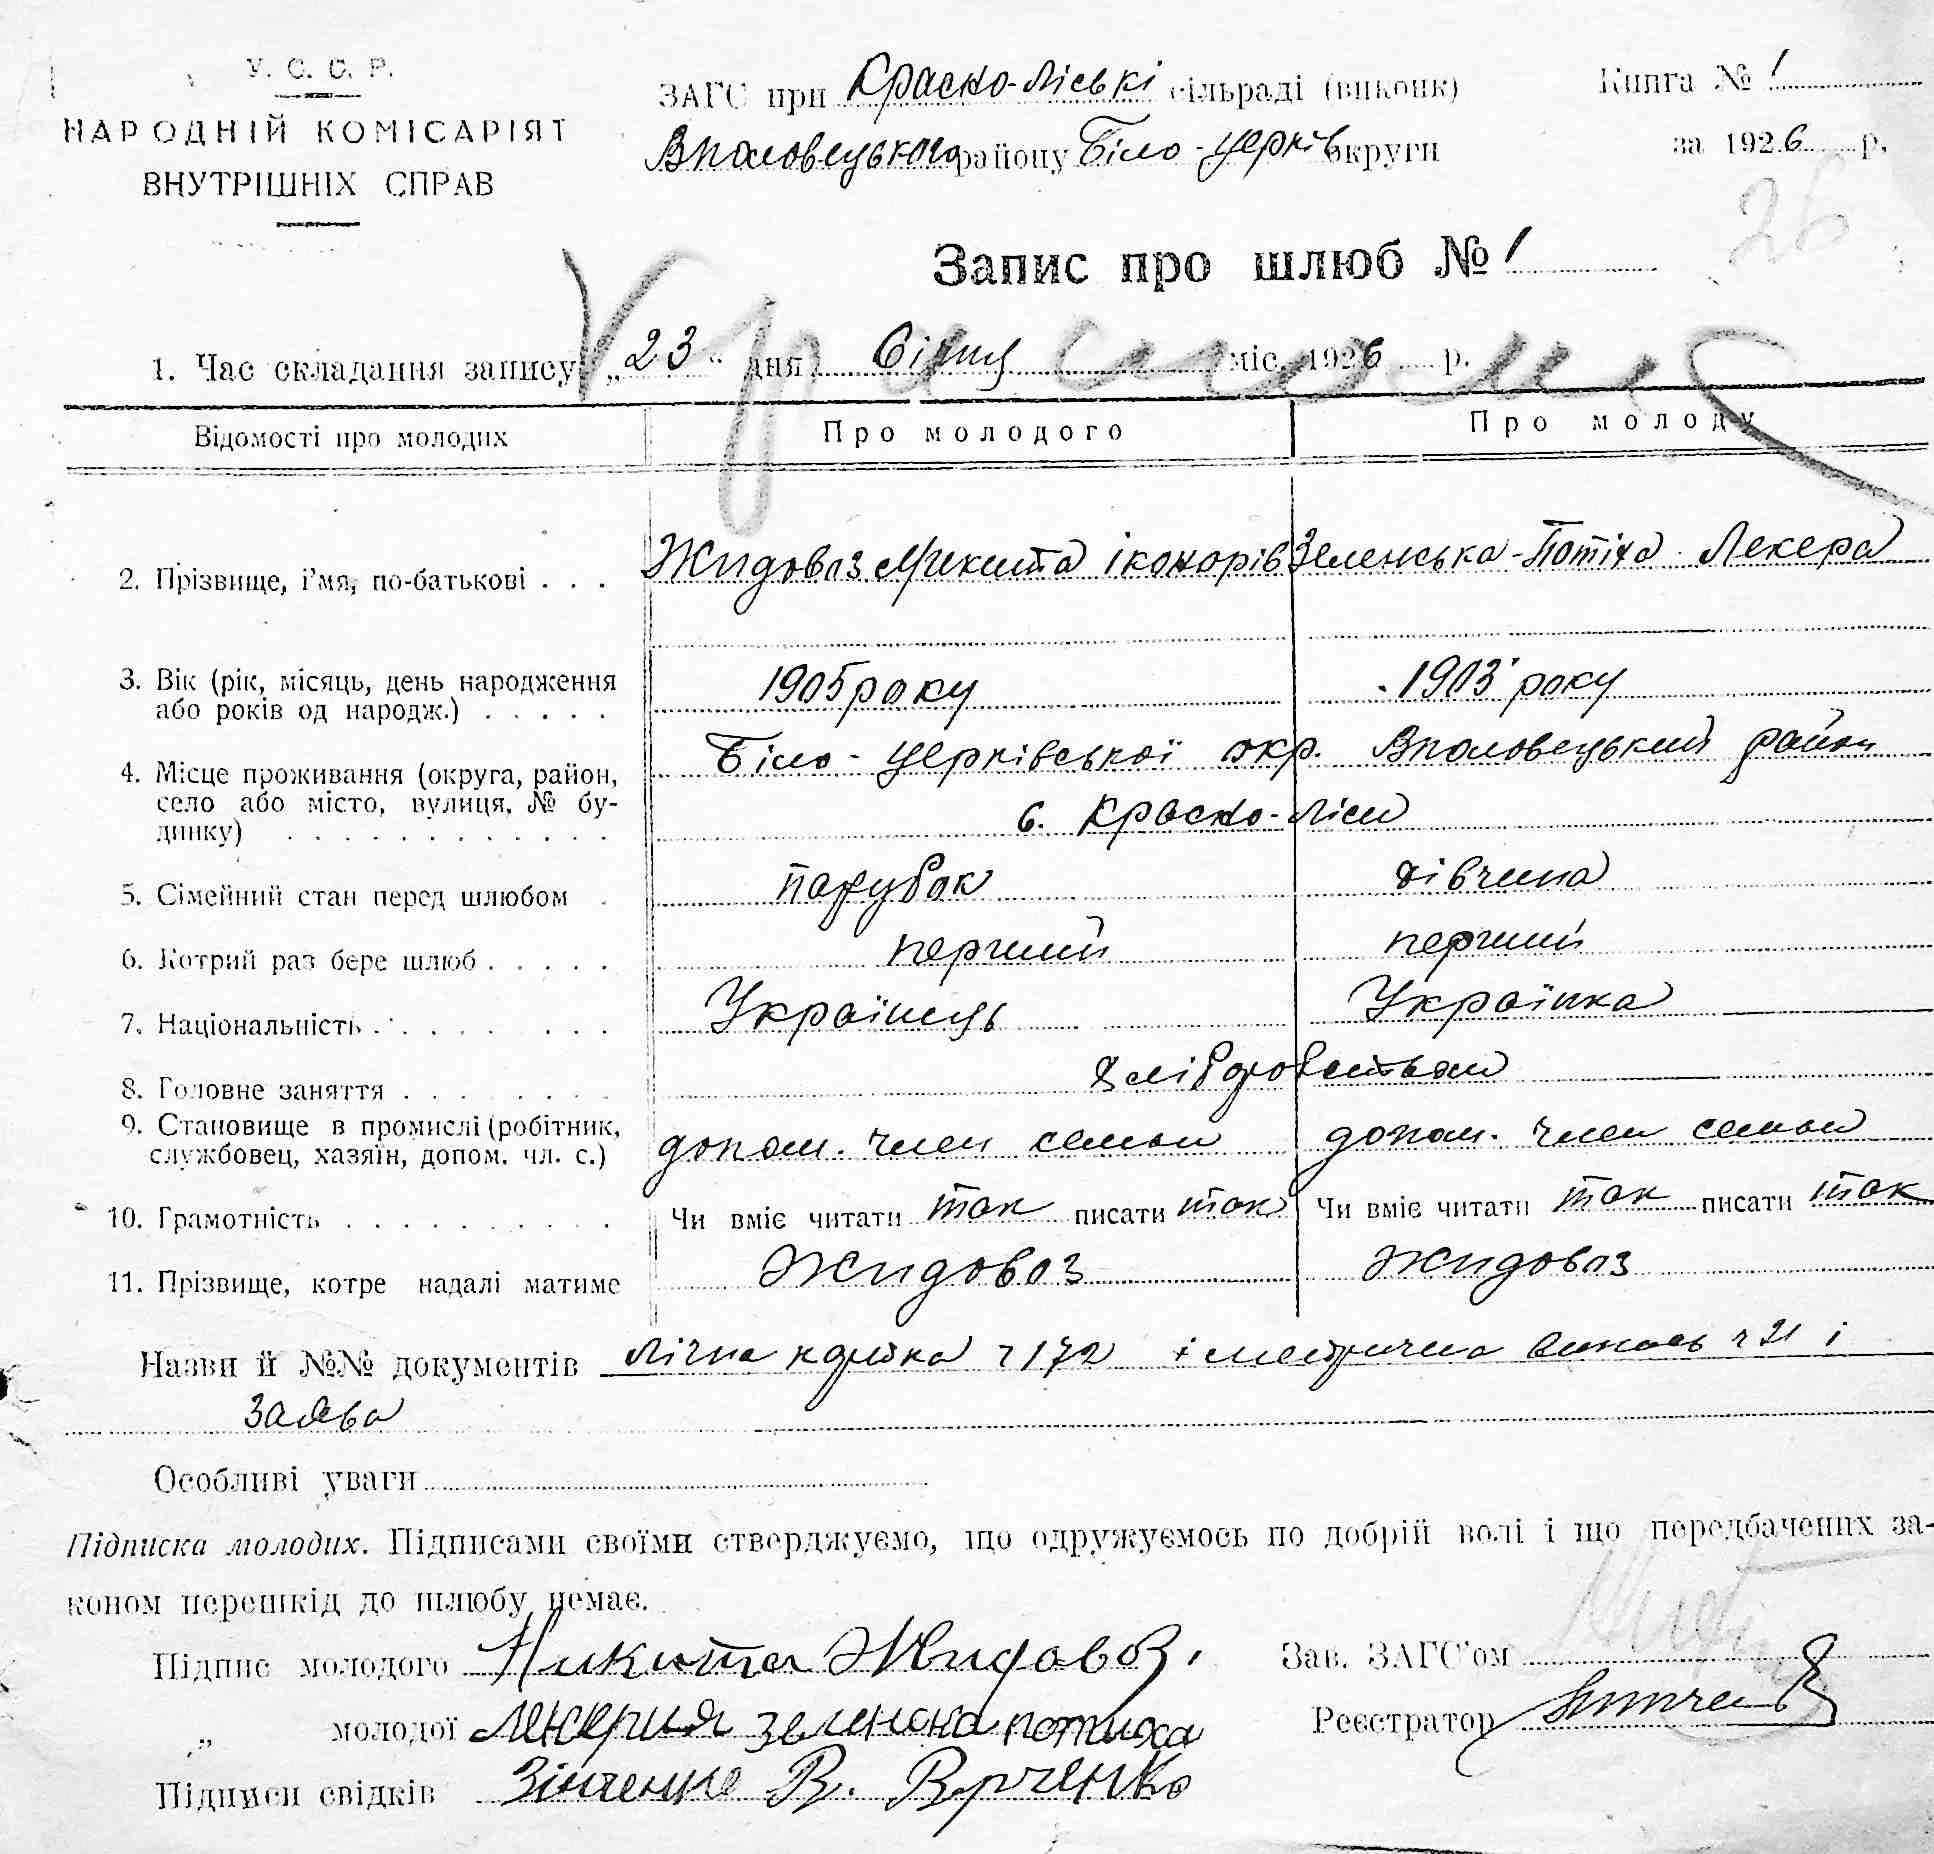 У. С. С. Р.
НАРОДНІЙ КОМІСАРІЯТ
ВНУТРІШНІХ СПРАВ
ЗАГС при Красно-Ліські сільраді (виконк)
Вполовецького району Біло-церків округи
Книга № 1
за 1926 р.
26
Запис про шлюб № 1
1. Час складання запису „23“ дня Січня міс. 1926 р.
Відомості про молодих
Про молодого
Про молоду
2. Прізвище, і'мя, по-батькові . . . Жидовоз Микита іконорів Зеленська-Потіха Лекера
3. Вік (рік, місяць, день народження
або років од народж.) . . . . . 1905 року 1903 року
4. Місце проживання (округа, район, Біло-церківської окр. Вполовецький район
село або місто, вулиця, № бу- с. Красно-Ліси
динку) . . . . . . . . . . . .
5. Сімейний стан перед шлюбом . парубок дівчина
6. Котрий раз бере шлюб . . . . . перший перший
7. Національність . . . . . . . . Українець Українка
8. Головне заняття . . . . . . . . хліборобством
9. Становище в промислі (робітник, допом. член семьи допом. член семьи
службовец, хазяїн, допом. чл. с.)
10. Грамотність . . . . . . . . . . Чи вміє читати так писати так Чи вміє читати так писати так
11. Прізвище, котре надалі матиме Жидовоз Жидовоз
Назви й №№ документів Лічна картка ч 172 і метрична випись ч 21 і
заява
Особливі уваги
Підписка молодих. Підписами своїми стверджуємо, що одружуємось по добрій волі і що передбачених за-
коном перешкід до шлюбу немає.
Підпис молодого Никита Жидовоз.
Зав. ЗАГС'ом
„ молодої Лекерия зеленска потиха
Реєстратор
Підписи свідків Зінченко В.